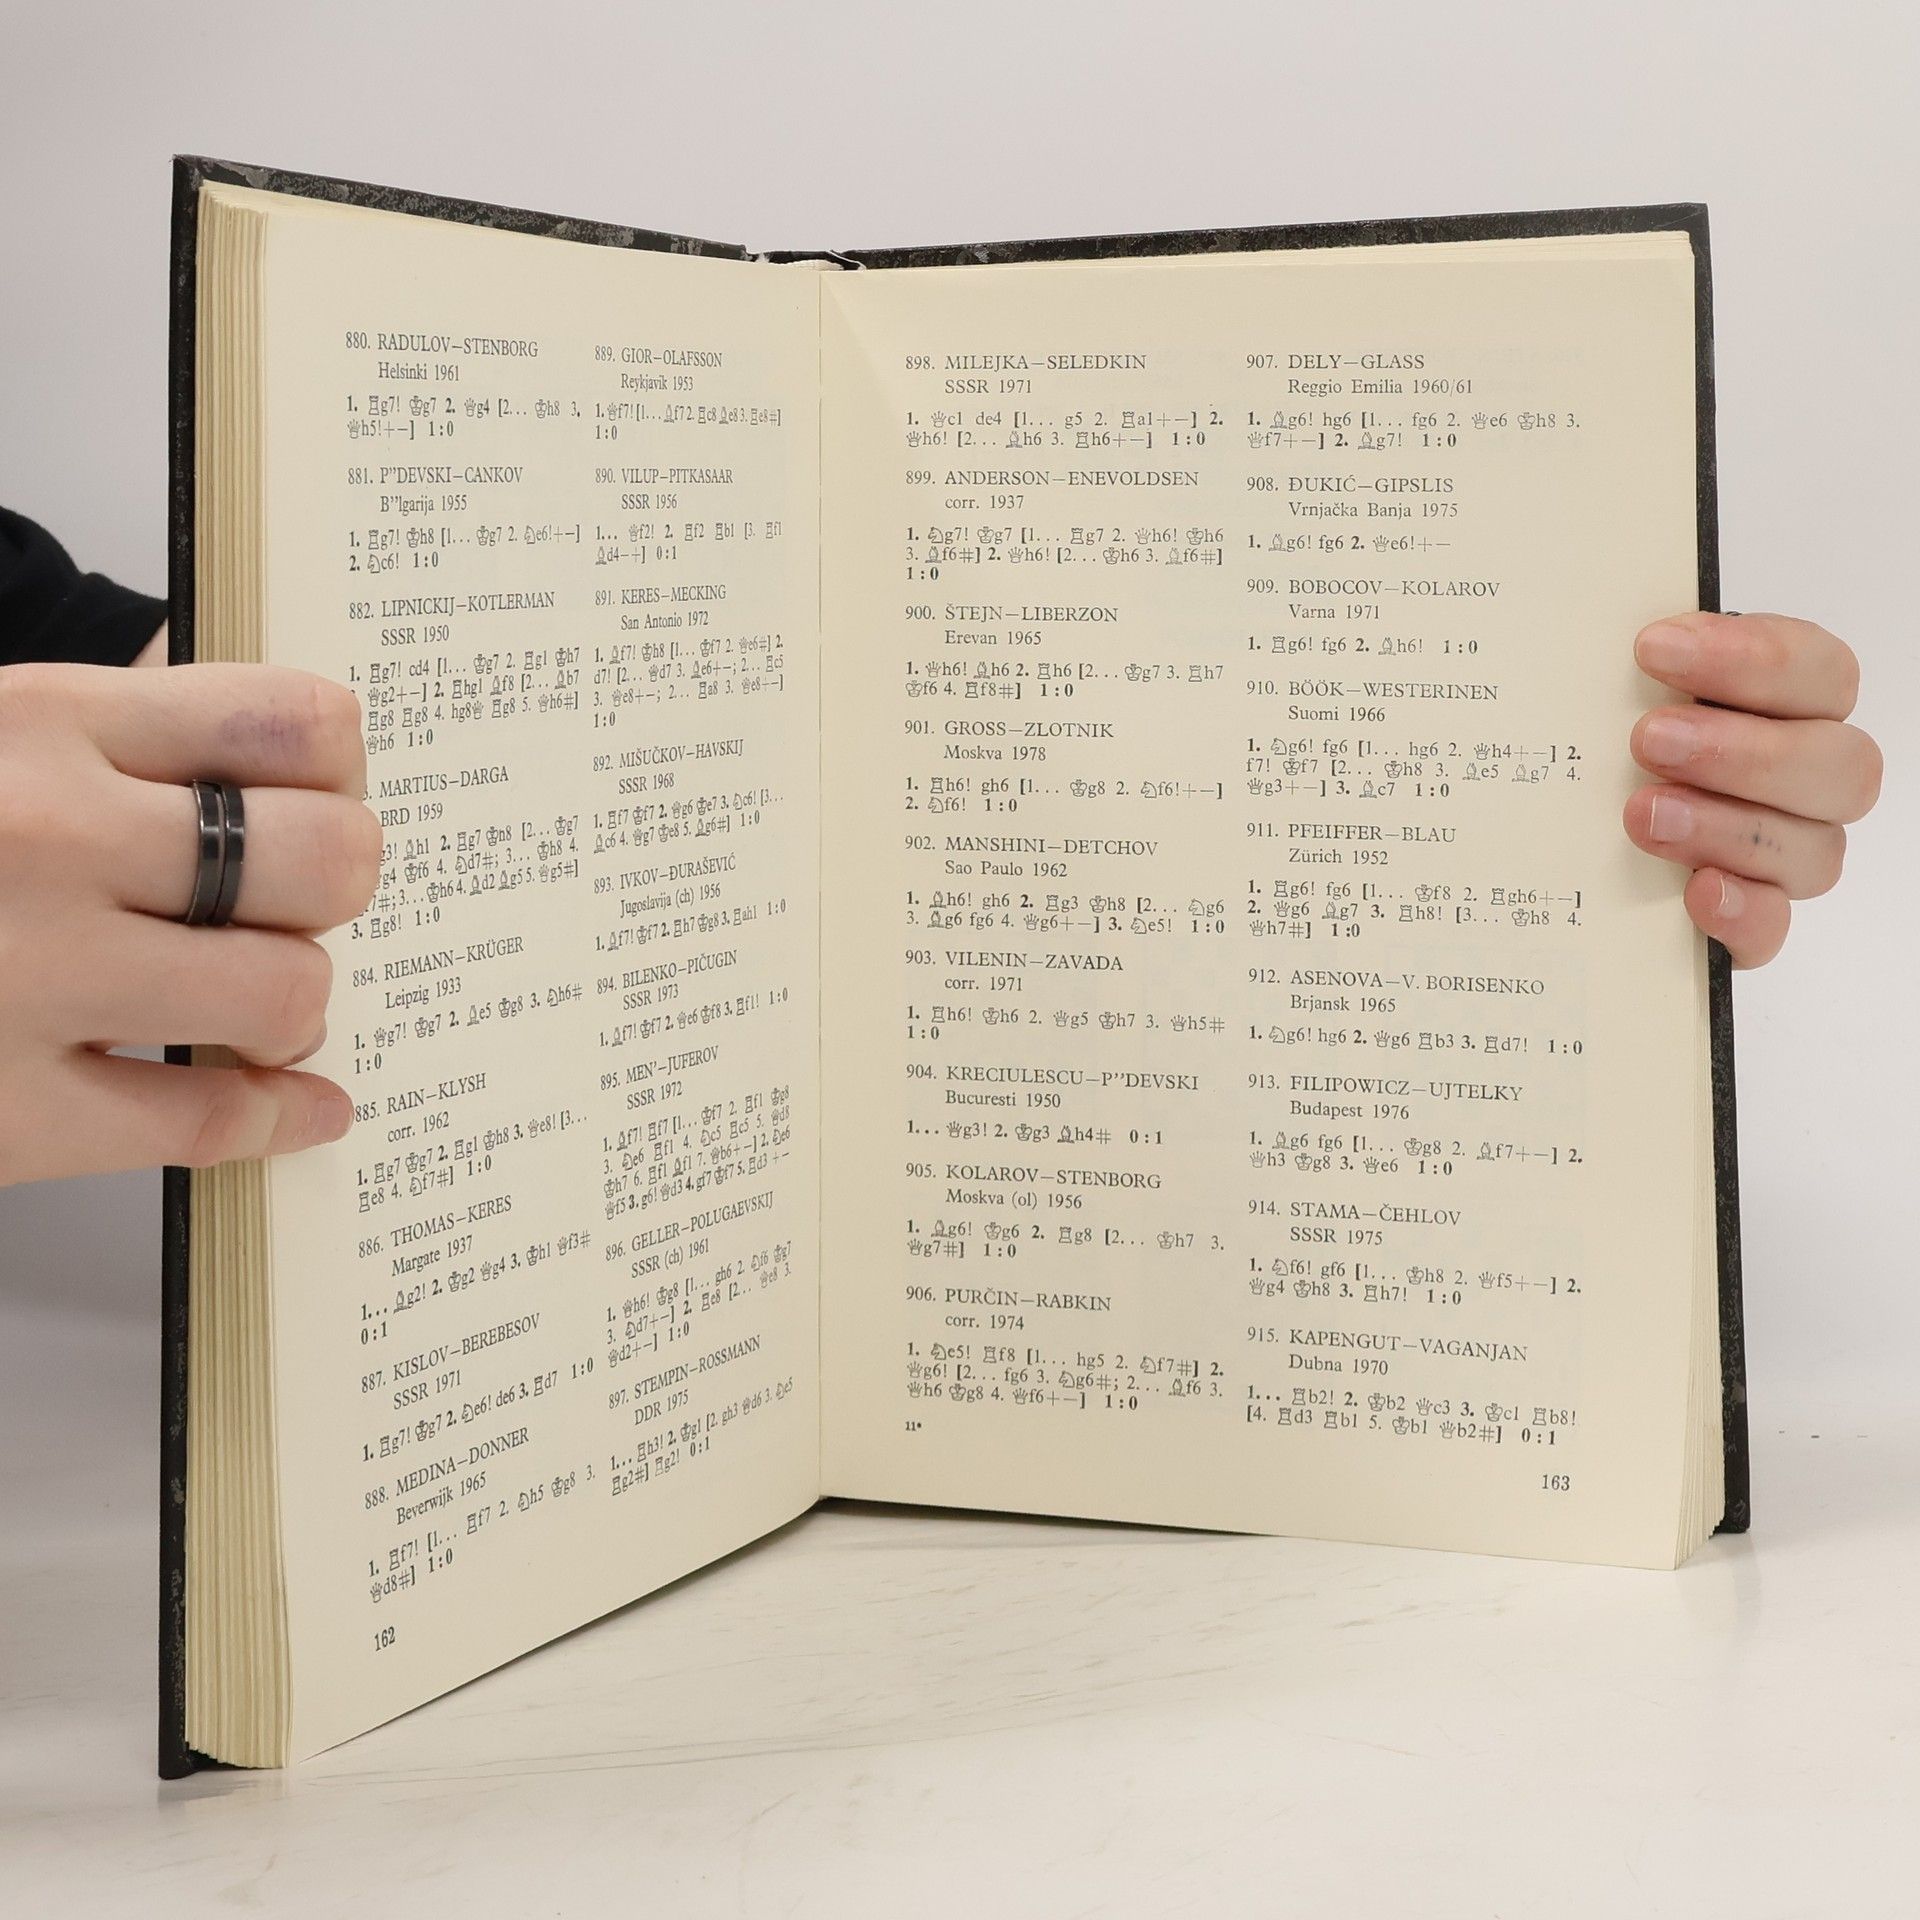 880. RADULOV–STENBORG
Helsinki 1961
1. ♖g7! ♔g7 2. ♕g4 [2... ♔h8 3.
♕h5!+−] 1:0
881. P”DEVSKI–CANKOV
B”lgarija 1955
1. ♖g7! ♔h8 [1... ♔g7 2. ♘e6!+−]
2. ♘c6! 1:0
882. LIPNICKIJ–KOTLERMAN
SSSR 1950
1. ♖g7! cd4 [1... ♔g7 2. ♖g1 ♔h7
♕g2+−] 2. ♖hg1 ♗f8 [2... ♗b7
♖g8 ♖g8 4. hg8♕ ♖g8 5. ♕h6#]
♕h6 1:0
MARTIUS–DARGA
BRD 1959
g3! ♗h1 2. ♖g7 ♔h8 [2... ♔g7
g4 ♔f6 4. ♘d7#; 3... ♔h8 4.
#; 3... ♔h6 4. ♗d2 ♗g5 5. ♕g5#]
3. ♖g8! 1:0
884. RIEMANN–KRÜGER
Leipzig 1933
1. ♕g7! ♔g7 2. ♗e5 ♔g8 3. ♘h6#
1:0
885. RAIN–KLYSH
corr. 1962
1. ♖g7 ♔g7 2. ♖g1 ♔h8 3. ♕e8! [3...
♖e8 4. ♘f7#] 1:0
886. THOMAS–KERES
Margate 1937
1... ♗g2! 2. ♔g2 ♕g4 3. ♔h1 ♕f3#
0:1
887. KISLOV–BEREBESOV
SSSR 1971
1. ♖g7! ♔g7 2. ♘e6! de6 3. ♖d7 1:0
888. MEDINA–DONNER
Beverwijk 1965
1. ♖f7! [1... ♖f7 2. ♘h5 ♔g8 3.
♕d8#] 1:0
162
889. GIOR–OLAFSSON
Reykjavik 1953
1. ♕f7! [1... ♗f7 2. ♖c8 ♗e8 3. ♖e8#]
1:0
890. VILUP–PITKASAAR
SSSR 1956
1... ♕f2! 2. ♖f2 ♖b1 [3. ♖f1
♗d4−+] 0:1
891. KERES–MECKING
San Antonio 1972
1. ♗f7! ♔h8 [1... ♔f7 2. ♕e6#] 2.
d7! [2... ♕d7 3. ♗e6+−; 2... ♖c5
3. ♕e8+−; 2... ♖a8 3. ♕e8+−]
1:0
892. MIŠUČKOV–HAVSKIJ
SSSR 1968
1. ♖f7 ♔f7 2. ♕g6 ♔e7 3. ♘c6! [3...
♗c6 4. ♕g7 ♔e8 5. ♗g6#] 1:0
893. IVKOV–ĐURAŠEVIĆ
Jugoslavija (ch) 1956
1. ♗f7! ♔f7 2. ♖h7 ♔g8 3. ♖ah1 1:0
894. BILENKO–PIČUGIN
SSSR 1973
1. ♗f7! ♔f7 2. ♕e6 ♔f8 3. ♖f1! 1:0
895. MEN’–JUFEROV
SSSR 1972
1. ♗f7! ♖f7 [1... ♔f7 2. ♖f1 ♔g8
3. ♘e6 ♖f1 4. ♘c5 ♖c5 5. ♕d8
♔h7 6. ♖f1 ♗f1 7. ♕b6+−] 2. ♘e6
♕f5 3. g6! ♕d3 4. gf7 ♔f7 5. ♖d3 +−
896. GELLER–POLUGAEVSKIJ
SSSR (ch) 1961
1. ♕h6! ♔g8 [1... gh6 2. ♘f6 ♔g7
3. ♘d7+−] 2. ♖e8 [2... ♕e8 3.
♕d2+−] 1:0
897. STEMPIN–ROSSMANN
DDR 1975
1... ♖h3! 2. ♔g1 [2. gh3 ♕d6 3. ♘e5
♖g2#] ♖g2! 0:1
898. MILEJKA–SELEDKIN
SSSR 1971
1. ♕c1 de4 [1... g5 2. ♖a1+−] 2.
♕h6! [2... ♗h6 3. ♖h6+−] 1:0
899. ANDERSON–ENEVOLDSEN
corr. 1937
1. ♘g7! ♔g7 [1... ♖g7 2. ♕h6! ♔h6
3. ♗f6#] 2. ♕h6! [2... ♔h6 3. ♗f6#]
1:0
900. ŠTEJN–LIBERZON
Erevan 1965
1. ♕h6! ♗h6 2. ♖h6 [2... ♔g7 3. ♖h7
♔f6 4. ♖f8#] 1:0
901. GROSS–ZLOTNIK
Moskva 1978
1. ♖h6! gh6 [1... ♔g8 2. ♘f6!+−]
2. ♘f6! 1:0
902. MANSHINI–DETCHOV
Sao Paulo 1962
1. ♗h6! gh6 2. ♖g3 ♔h8 [2... ♘g6
3. ♗g6 fg6 4. ♕g6+−] 3. ♘e5! 1:0
903. VILENIN–ZAVADA
corr. 1971
1. ♖h6! ♔h6 2. ♕g5 ♔h7 3. ♕h5#
1:0
904. KRECIULESCU–P”DEVSKI
Bucuresti 1950
1... ♕g3! 2. ♔g3 ♗h4# 0:1
905. KOLAROV–STENBORG
Moskva (ol) 1956
1. ♗g6! ♔g6 2. ♖g8 [2... ♔h7 3.
♕g7#] 1:0
906. PURČIN–RABKIN
corr. 1974
1. ♘e5! ♖f8 [1... hg5 2. ♘f7#] 2.
♕g6! [2... fg6 3. ♘g6#; 2... ♗f6 3.
♕h6 ♔g8 4. ♕f6+−] 1:0
11*
907. DELY–GLASS
Reggio Emilia 1960/61
1. ♗g6! hg6 [1... fg6 2. ♕e6 ♔h8 3.
♕f7+−] 2. ♗g7! 1:0
908. ĐUKIĆ–GIPSLIS
Vrnjačka Banja 1975
1. ♗g6! fg6 2. ♕e6!+−
909. BOBOCOV–KOLAROV
Varna 1971
1. ♖g6! fg6 2. ♗h6! 1:0
910. BÖÖK–WESTERINEN
Suomi 1966
1. ♘g6! fg6 [1... hg6 2. ♕h4+−] 2.
f7! ♔f7 [2... ♔h8 3. ♗e5 ♗g7 4.
♕g3+−] 3. ♗c7 1:0
911. PFEIFFER–BLAU
Zürich 1952
1. ♖g6! fg6 [1... ♔f8 2. ♖gh6+−]
2. ♕g6 ♗g7 3. ♖h8! [3... ♔h8 4.
♕h7#] 1:0
912. ASENOVA–V. BORISENKO
Brjansk 1965
1. ♘g6! hg6 2. ♕g6 ♖b3 3. ♖d7! 1:0
913. FILIPOWICZ–UJTELKY
Budapest 1976
1. ♗g6 fg6 [1... ♔g8 2. ♗f7+−] 2.
♕h3 ♔g8 3. ♕e6 1:0
914. STAMA–ČEHLOV
SSSR 1975
1. ♘f6! gf6 [1... ♔h8 2. ♕f5+−] 2.
♕g4 ♔h8 3. ♖h7! 1:0
915. KAPENGUT–VAGANJAN
Dubna 1970
1... ♖b2! 2. ♔b2 ♕c3 3. ♔c1 ♖b8!
[4. ♖d3 ♖b1 5. ♔b1 ♕b2#] 0:1
163